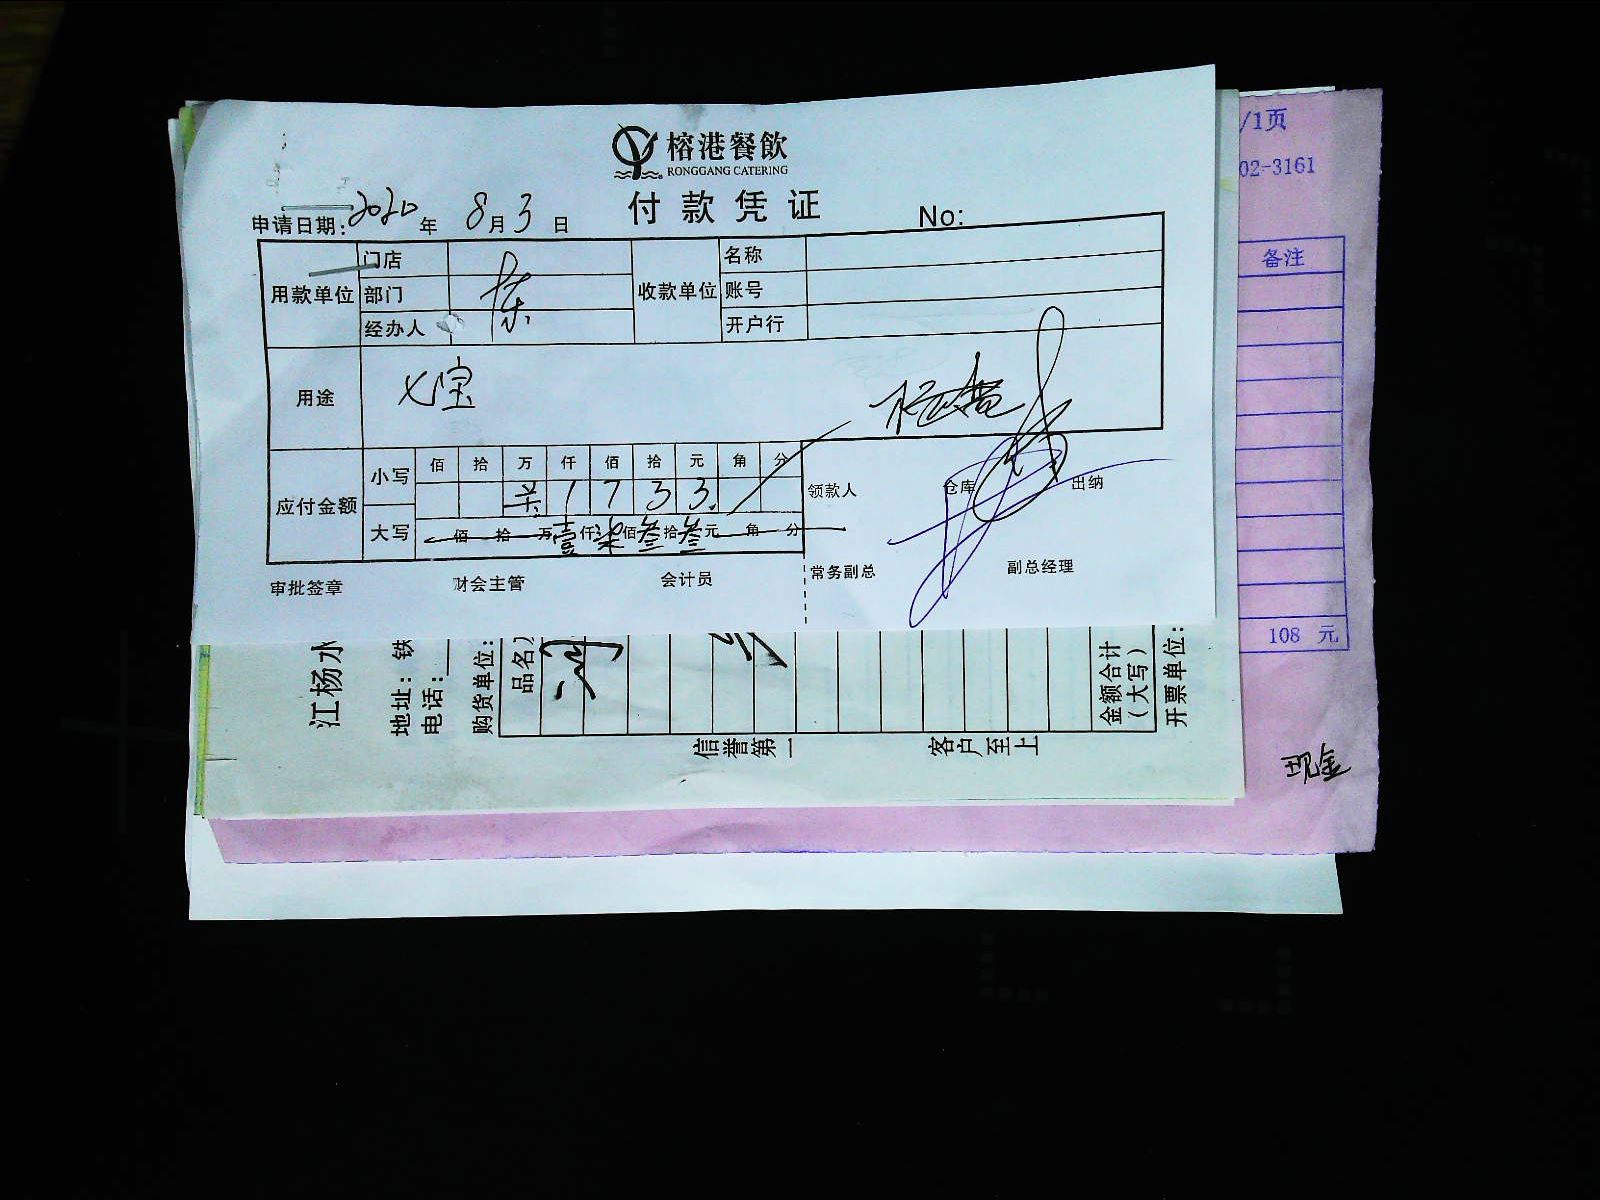 榕港餐飲
RONGGANG CATERING
付款凭证
申请日期: 2020 年 8 月 3 日 No:
用款单位 门店 收款单位 名称
部门 东 账号
经办人 开户行
用途 七宝
应付金额 小写 佰 拾 万 仟 佰 拾 元 角 分
1 7 3 3
领款人 仓库 出纳
大写 佰 拾 万 壹 仟 柒 佰 叁 拾 叁 元 角 分
审批签章 财会主管 会计员 常务副总 副总经理
/1页
02-3161
备注
108 元
现金
江杨水
地址: 铁
电话:
购货单位:
品名
金额合计
(大写)
开票单位:
信誉第一 客户至上